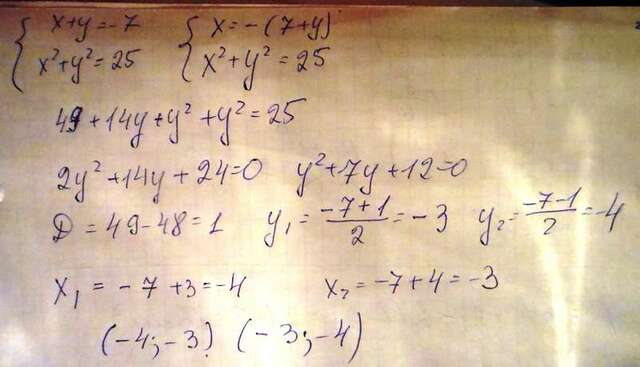 { x+y=-7   { x=-(7+y)
{ x²+y²=25   { x²+y²=25
49+14y+y²+y²=25
2y²+14y+24=0   y²+7y+12=0
D=49-48=1   y₁=(-7+1)/2=-3   y₂=(-7-1)/2=-4
x₁=-7+3=-4   x₂=-7+4=-3
(-4;-3)   (-3;-4)